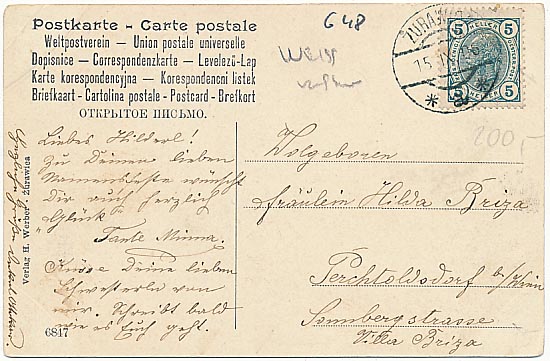 Postkarte - Carte postale
Weltpostverein — Union postale universelle
Dopisnice — Correspondenzkarte — Levelező-Lap
Karte korespondencyjna — Korespondencni listek
Briefkaart - Cartolina postale - Postcard - Brefkort
ОТКРЫТОЕ ПИСЬМО.
G 48
WEISS
5 HELLER 5
5 5
200,-
Liebes Hilderl!
Zu Deinem lieben
Namensfeste wünscht
Dir auch herzlich
"Glück"
Tante Minna.
Küsse Deine lieben
Schwesterln von
mir. Schreibt bald
wie es Euch geht.
6847
Verlag H. Werber, Żurawica
Wolgeboren
fräulein Hilda Briza
Perchtoldsdorf b/Wien
Sonnbergstrasse
Villa Briza